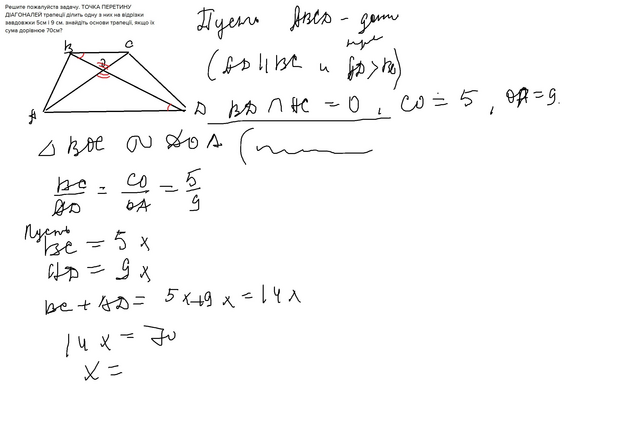 Решите пожалуйста задачу. ТОЧКА ПЕРЕТИНУ
ДІАГОНАЛЕЙ трапеції ділить одну з них на відрізки
завдовжки 5см і 9 см. знайдіть основи трапеції, якщо їх
сума дорівнює 70см?
Пусть ABCD – дан
(AD || BC и AD > BC)
B C
A D
BD ∩ AC = O , CO = 5 , OA = 9.
△ BOC ∾ DOA (
BC/AD = CO/OA = 5/9
Пусть
BC = 5x
AD = 9x
BC + AD = 5x+9x = 14x
14x = 70
x =